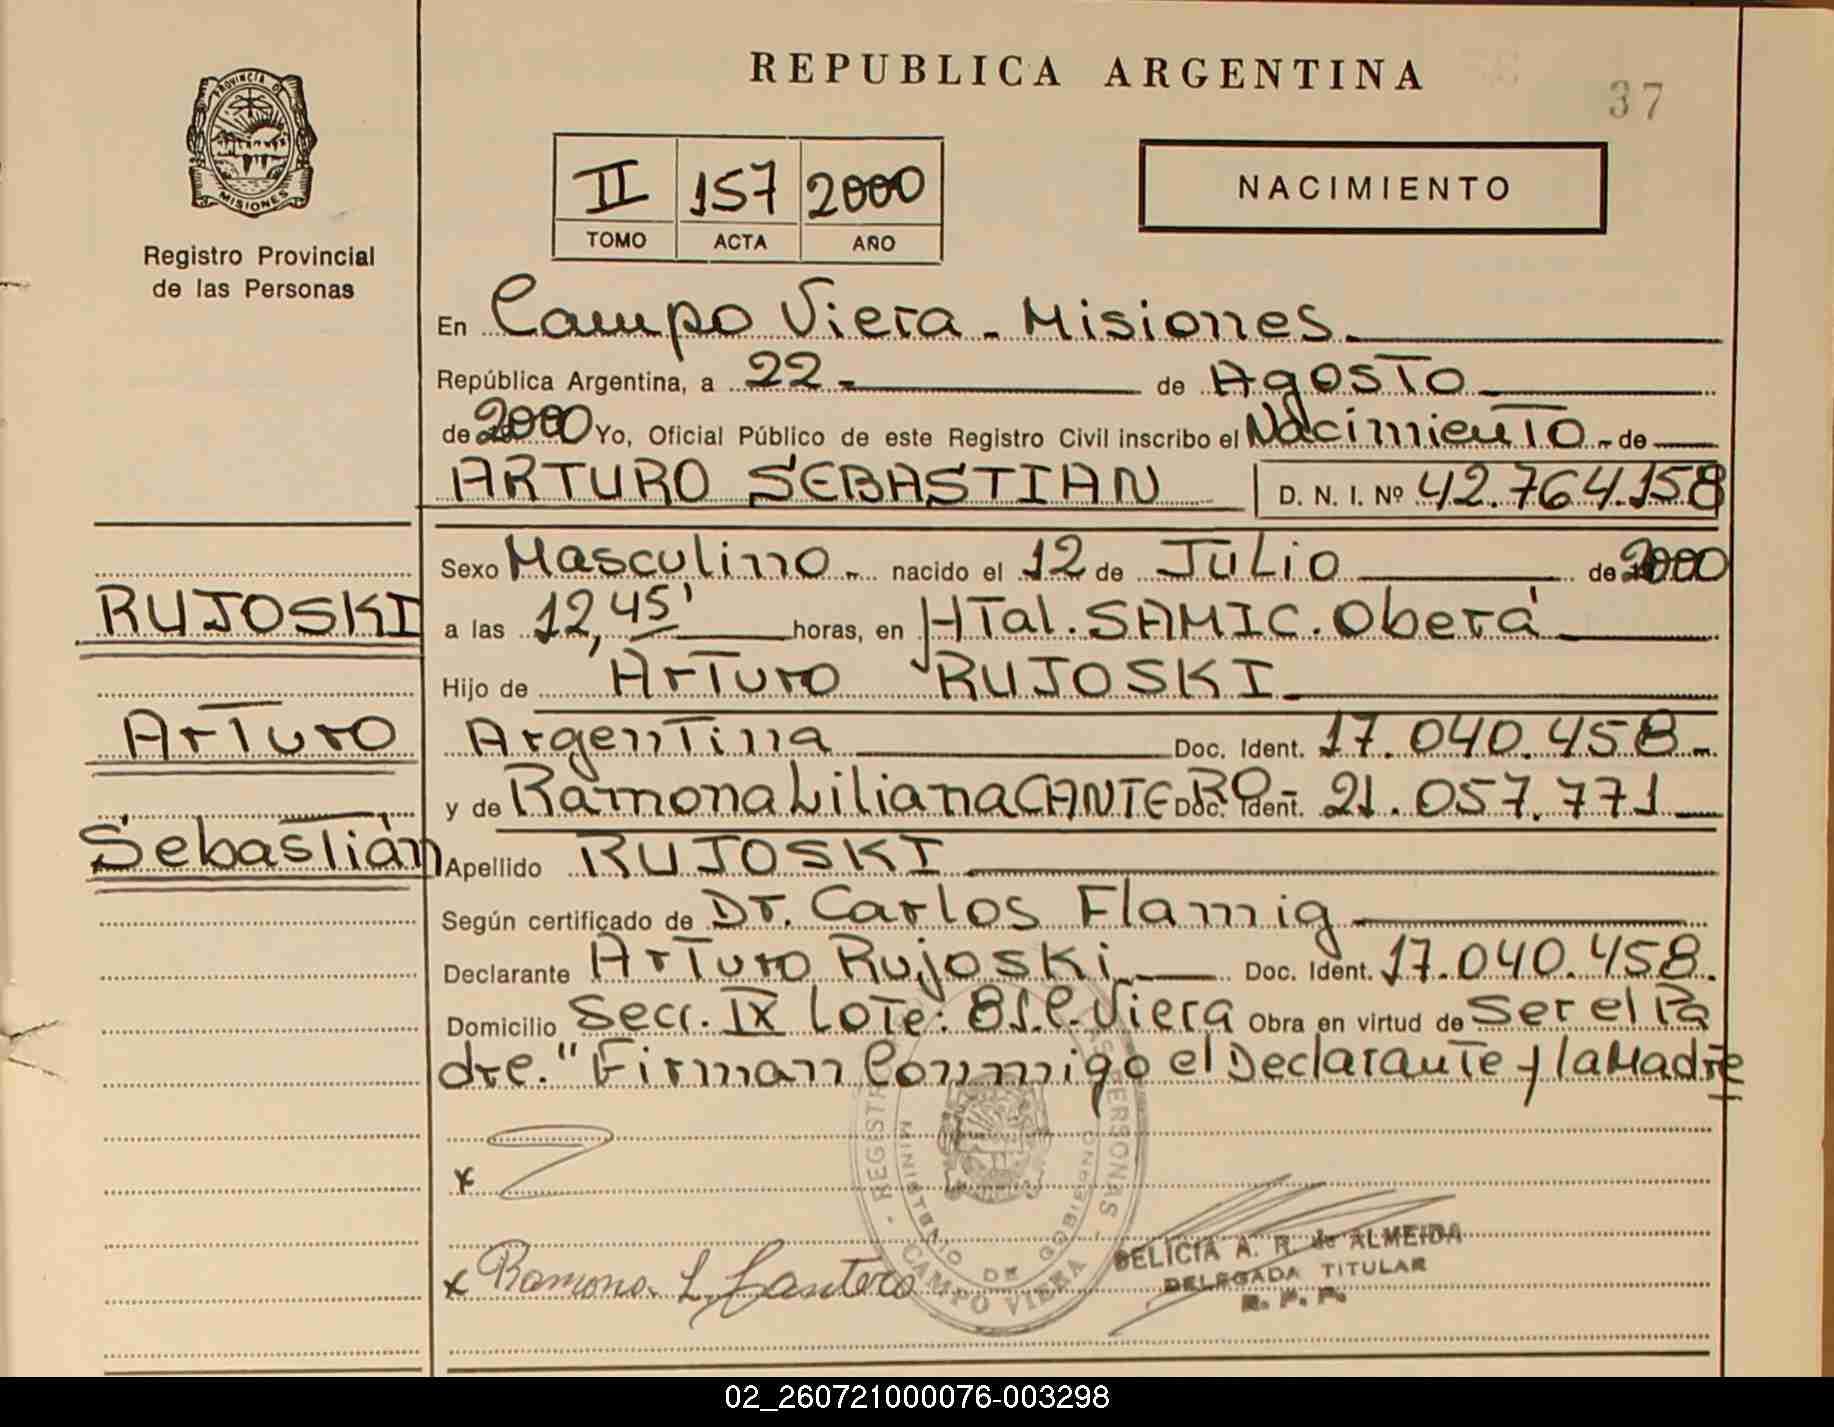 REPUBLICA ARGENTINA
37
PROVINCIA DE MISIONES
Registro Provincial
de las Personas
II 157 2000
TOMO ACTA AÑO
NACIMIENTO
En Campo Viera - Misiones.
República Argentina, a 22 - de Agosto
de 2000 Yo, Oficial Público de este Registro Civil inscribo el Nacimiento - de
ARTURO SEBASTIAN D. N. I. Nº 42.764.158
RUJOSKI
Arturo
Sebastián
Sexo Masculino - nacido el 12 de Julio de 2000
a las 12,45' horas, en HTal. SAMIC. Oberá
Hijo de Arturo RUJOSKI
Argentina Doc. Ident. 17.040.458 -
y de Ramona Liliana CANTERO - Doc. Ident. 21.057.771
Apellido RUJOSKI
Según certificado de Dr. Carlos Flamig
Declarante Arturo Rujoski Doc. Ident. 17.040.458.
Domicilio Secc. IX Lote: 81.C. Viera Obra en virtud de Ser el Pa
dre." Firman Conmigo el Declarante y la Madre
x
x Ramona L Cantero
MINISTERIO DE GOBIERNO
CAMPO VIERA
DELICIA A. R. de ALMEIDA
DELEGADA TITULAR
R. P. P.
02_260721000076-003298